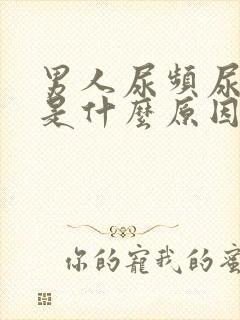 男人尿頻尿
是什麼原因
你的寵我的蜜